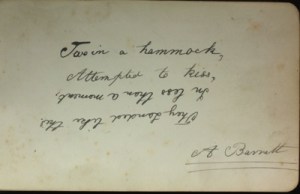 Two in a hammock,
Attempted to kiss,
In less than a moment,
They landed like this
A Barrett